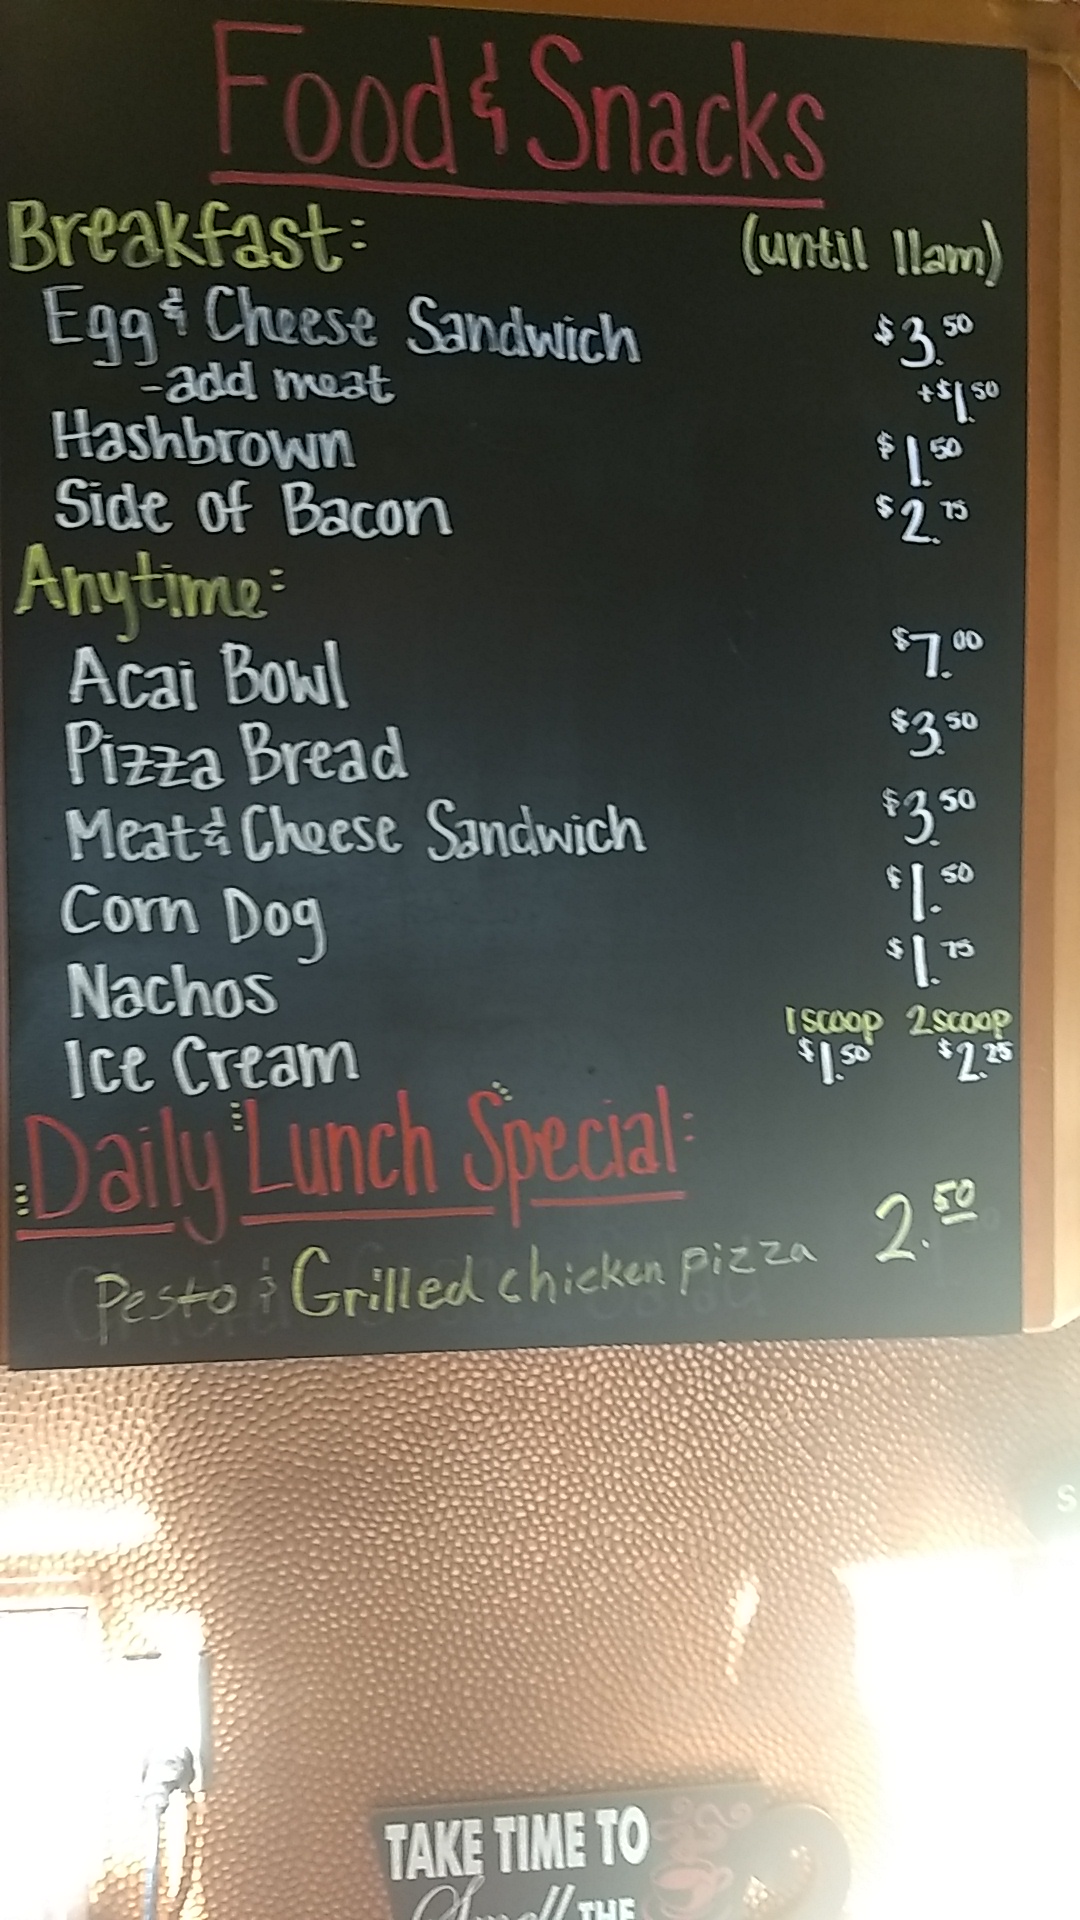 Food & Snacks
Breakfast: (until 11am)
Egg & Cheese Sandwich $3.50
-add meat +$1.50
Hashbrown $1.50
Side of Bacon $2.75
Anytime:
Acai Bowl $7.00
Pizza Bread $3.50
Meat & Cheese Sandwich $3.50
Corn Dog $1.50
Nachos $1.75
1 scoop 2 scoop
Ice Cream $1.50 $2.25
Daily Lunch Special:
Pesto & Grilled chicken pizza 2.50
S
TAKE TIME TO
Smell THE